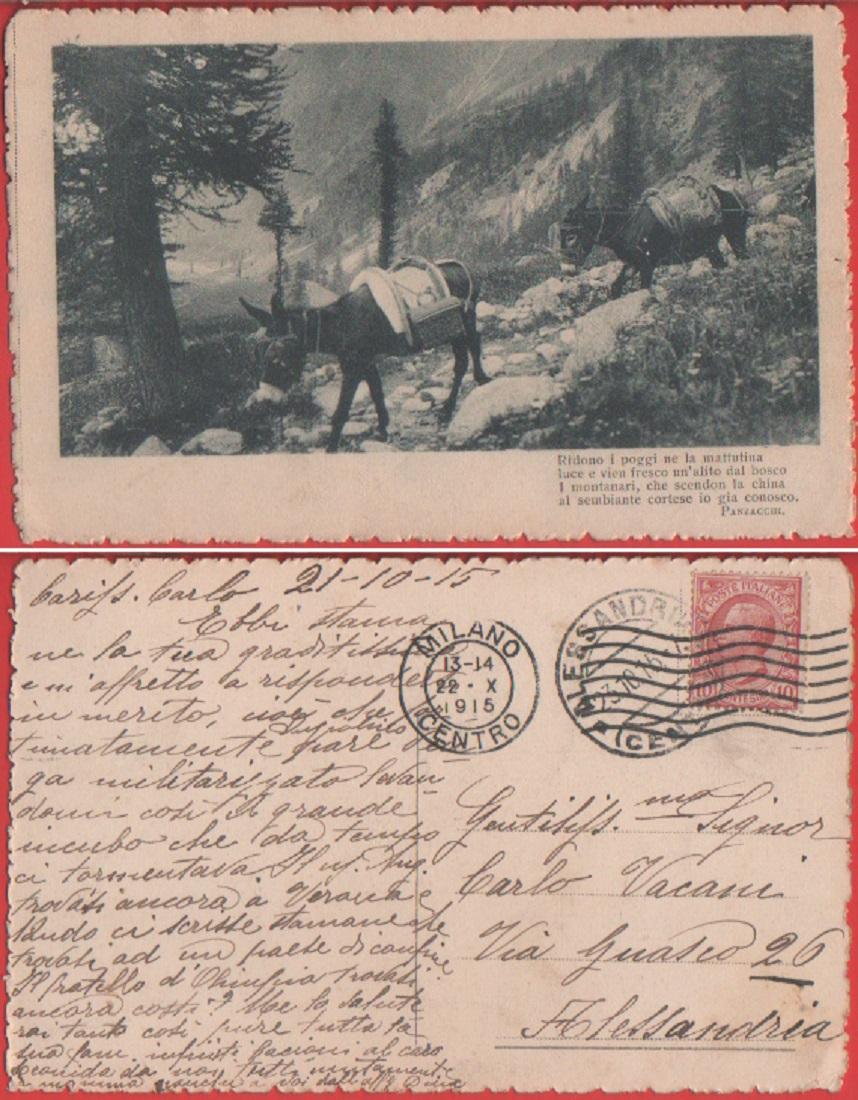 Ridono i poggi ne la mattutina
luce e vien fresco un'alito dal bosco
I montanari, che scendon la china
al sembiante cortese io gia conosco.
PANZACCHI.
Cariss. Carlo 21-10-15
Ebbi stama
ne la tua graditissi
e m'affretto a risponder
in merito, cioè che
tunatamente pare
ga militarizzato levan
domi così il grande
incubo che da tempo
ci tormentava. Il
trovasi ancora a Verona e
ci scrisse stamane che
trovasi ad un paese di confine
Il fratello d' trovasi
ancora costì? Me lo saluterai
tanto così pure tutta la
tua fam. infiniti bacioni al caro
da noi tutti unitamente
a mamma a voi
MILANO
13-14
22 - X
1915
CENTRO
ALESSANDRIA
(CEN
POSTE ITALIANE
10 10
Gentiliss.mo Signor
Carlo Vacani
Via Guasco 26
Alessandria